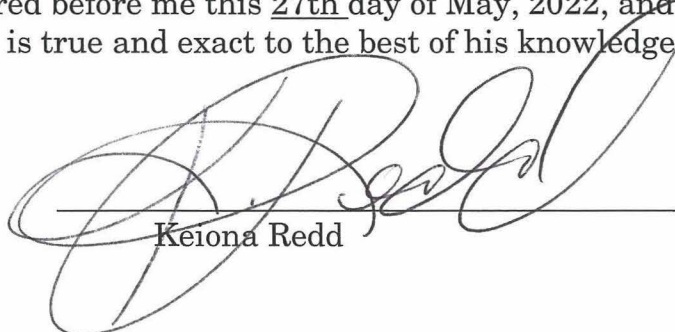 red before me this 27th day of May, 2022, and
is true and exact to the best of his knowledge
Keiona Redd